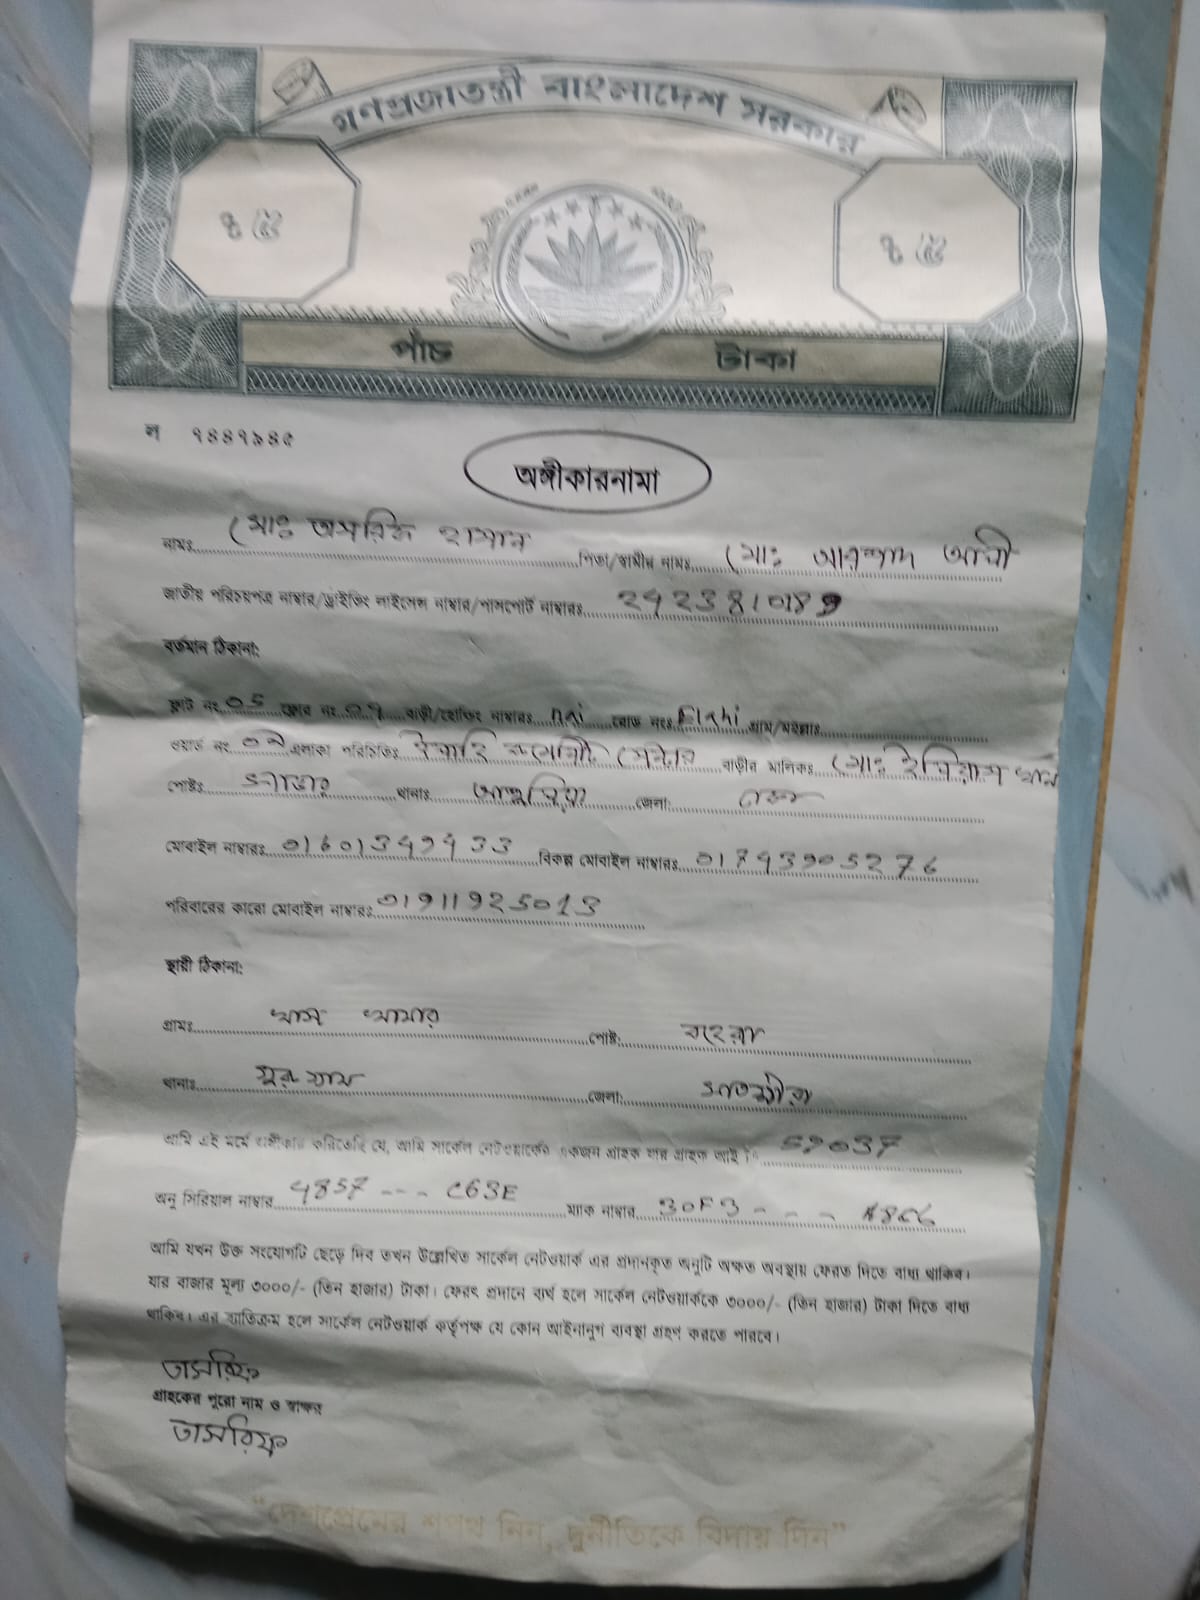 গণপ্রজাতন্ত্রী বাংলাদেশ সরকার
৳ ৫ ৳ ৫
পাঁচ টাকা
ন ৭৪৪৭৯৪৫
অঙ্গীকারনামা
নামঃ মোঃ তাসরিফ হাসান পিতা/স্বামীর নামঃ মোঃ আরশাদ আলী
জাতীয় পরিচয়পত্র নাম্বার/ড্রাইভিং লাইসেন্স নাম্বার/পাসপোর্ট নাম্বারঃ
বর্তমান ঠিকানা:
ফ্লাট নং 05 ফ্লোর নং 07 বাড়ী/হোল্ডিং নাম্বারঃ nai রোড নংঃ Elahi গ্রাম/মহল্লাঃ
ওয়ার্ড নং এলাকা পরিচিতিঃ বাড়ীর মালিকঃ মোঃ ইলিয়াস খান
পোষ্টঃ সাভার থানাঃ আশুলিয়া জেলা: ঢাকা
মোবাইল নাম্বারঃ 01601347733 বিকল্প মোবাইল নাম্বারঃ 01743905276
পরিবারের কারো মোবাইল নাম্বারঃ 01911925013
স্থায়ী ঠিকানা:
গ্রামঃ খাস খামার পোষ্ট: বহেরা
থানাঃ জেলা: সাতক্ষীরা
আমি এই মর্মে অঙ্গীকার করিতেছি যে, আমি সার্কেল নেটওয়ার্কের একজন গ্রাহক যার গ্রাহক আইডি
অনু সিরিয়াল নাম্বার 4857 --- C63E ম্যাক নাম্বার 30F3 - - -
আমি যখন উক্ত সংযোগটি ছেড়ে দিব তখন উল্লেখিত সার্কেল নেটওয়ার্ক এর প্রদানকৃত অনুটি অক্ষত অবস্থায় ফেরত দিতে বাধ্য থাকিব।
যার বাজার মূল্য ৩০০০/- (তিন হাজার) টাকা। ফেরৎ প্রদানে ব্যর্থ হলে সার্কেল নেটওয়ার্ককে ৩০০০/- (তিন হাজার) টাকা দিতে বাধ্য
থাকিব। এর ব্যতিক্রম হলে সার্কেল নেটওয়ার্ক কর্তৃপক্ষ যে কোন আইনানুগ ব্যবস্থা গ্রহণ করতে পারবে।
তাসরিফ
গ্রাহকের পুরো নাম ও স্বাক্ষর
তাসরিফ
"দেশপ্রেমের শপথ নিন, দুর্নীতিকে বিদায় দিন"